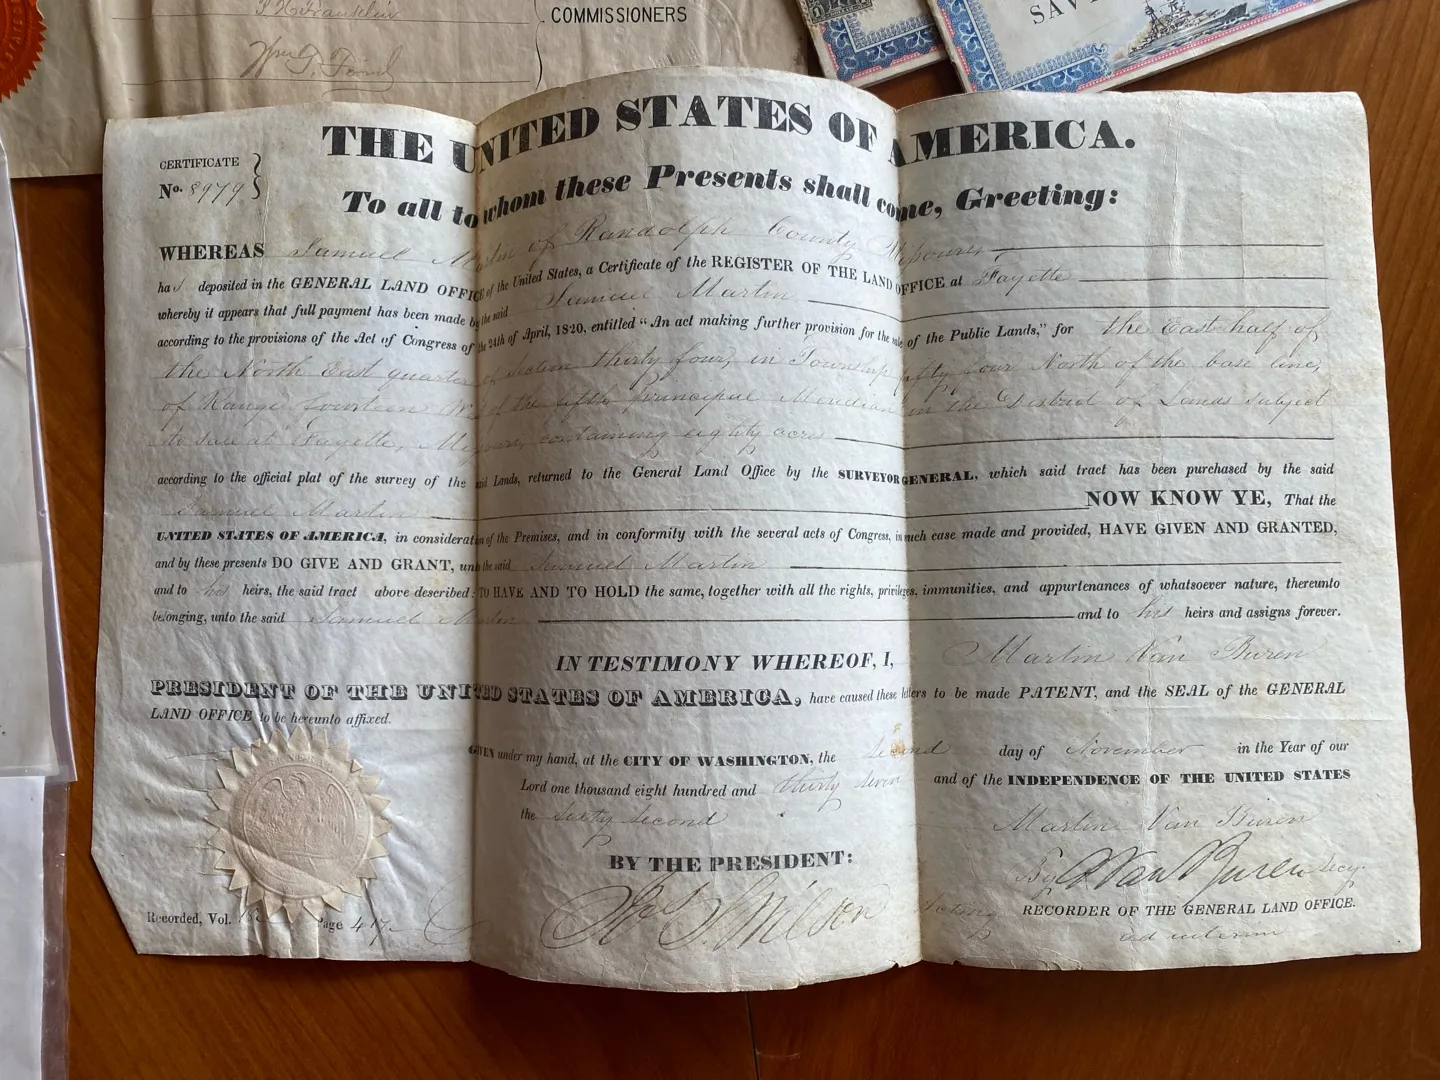 COMMISSIONERS
Wm. G. Ford
SAV
THE UNITED STATES OF AMERICA.
CERTIFICATE
No. 8979
To all to whom these Presents shall come, Greeting:
WHEREAS Samuel Martin of Randolph County Missouri
ha s deposited in the GENERAL LAND OFFICE of the United States, a Certificate of the REGISTER OF THE LAND OFFICE at Fayette
whereby it appears that full payment has been made by the said Samuel Martin
according to the provisions of the Act of Congress of the 24th of April, 1820, entitled "An act making further provision for the sale of the Public Lands," for the East half of
the North East quarter of Section thirty four, in Township fifty four North of the base line,
of Range fourteen West of the fifth Principal Meridian in the District of Lands subject
to sale at Fayette, Missouri, containing eighty acres
according to the official plat of the survey of the said Lands, returned to the General Land Office by the SURVEYOR GENERAL, which said tract has been purchased by the said
Samuel Martin NOW KNOW YE, That the
UNITED STATES OF AMERICA, in consideration of the Premises, and in conformity with the several acts of Congress, in such case made and provided, HAVE GIVEN AND GRANTED,
and by these presents DO GIVE AND GRANT, unto the said Samuel Martin
and to his heirs, the said tract above described: TO HAVE AND TO HOLD the same, together with all the rights, privileges, immunities, and appurtenances of whatsoever nature, thereunto
belonging, unto the said Samuel Martin and to his heirs and assigns forever.
IN TESTIMONY WHEREOF, I, Martin Van Buren
PRESIDENT OF THE UNITED STATES OF AMERICA, have caused these letters to be made PATENT, and the SEAL of the GENERAL
LAND OFFICE to be hereunto affixed.
GIVEN under my hand, at the CITY OF WASHINGTON, the second day of November in the Year of our
Lord one thousand eight hundred and thirty seven and of the INDEPENDENCE OF THE UNITED STATES
the sixty second
BY THE PRESIDENT: Martin Van Buren
By A Van Buren Secy.
Recorded, Vol. Page 417.
Jos. S. Wilson Acting RECORDER OF THE GENERAL LAND OFFICE.
ad interim